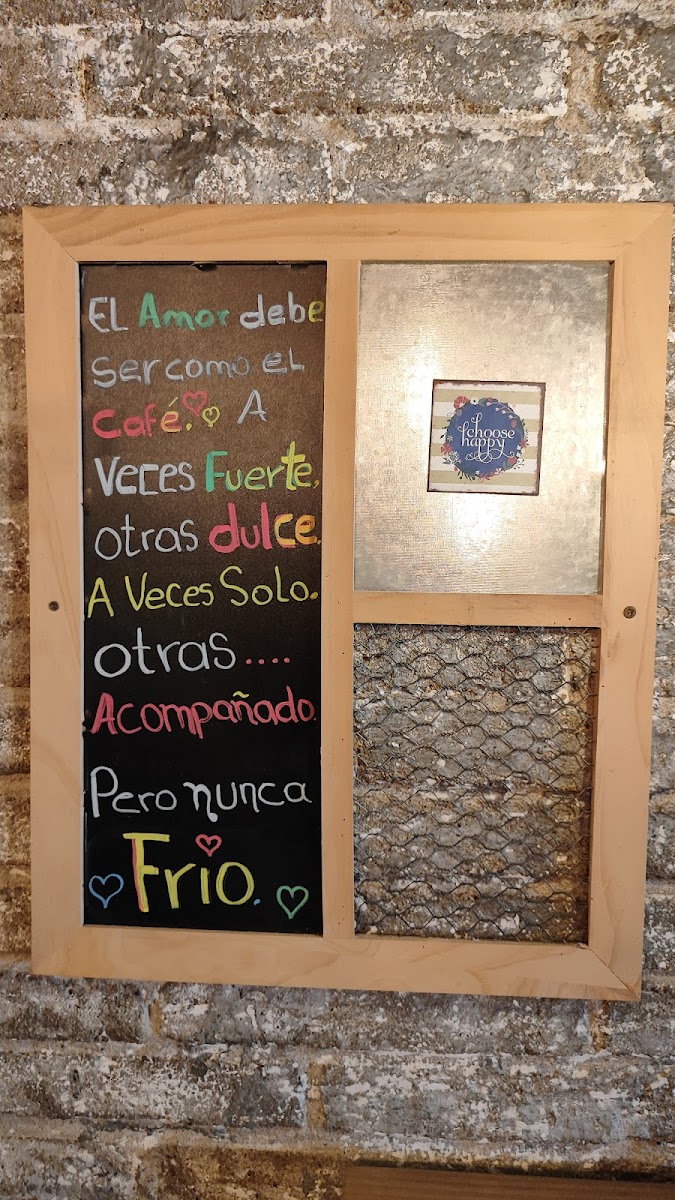 EL Amor debe
Ser como EL
Café. A
Veces Fuerte,
otras dulce.
A Veces Solo.
otras....
Acompañado.
Pero nunca
Frio.
I choose
happy